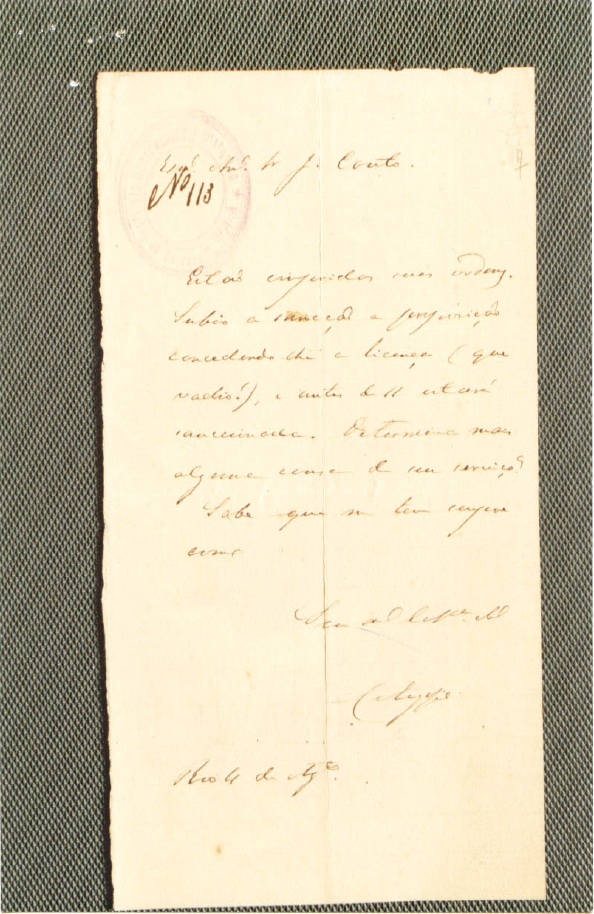 Exmo. Amo. Sr. J. Couto.
No 113
Estão cumpridas suas ordens.
Subio a sancção a proposição
concedendo-lhe a licença (que
vadio!), e antes de 11 estará
sanccionada. Determine mais
alguma cousa de seu serviço
Sabe que m tem sempre
como
Seu
Cotegipe
Rio 4 de